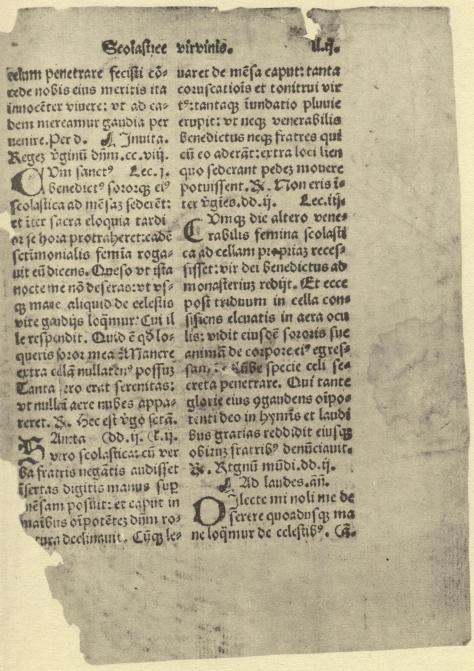 Scolastice virginis. ii.
celum penetrare fecisti cō-
cede nobis eius meritis ita
innocēter vivere: vt ad ea-
dem mereamur gaudia per
venire. Per d. Invita.
Regez v̄ginū dn̄m. cc. viij.
CVm sanctꝰ Lec. j.
benedictꝰ sororqꝫ eiꝰ
scolastica ad mēsaz sederēt:
et īter sacra eloquia tardi
or se hora protraheret: eadē
sctimonialis femīa roga-
uit eū dicens. Queso vt ista
nocte me nō deseras: vt vs-
qꝫ mane aliquid de celestis
vite gaudijs loq̄mur: Cui il
le respondit. Quid ē qd̄ lo-
queris soror mea Manere
extra cellā nullatenꝰ possuz
Tanta ꝟro erat serenitas:
vt nulla aere nubes appa-
reret. ℟. Hec est v̄go
Sancta dd. ij. ij.
vero scolastica: cū ver
ba fratris negātis audisset
īsertas digitis manus suꝑ
mēsam posuit: et caput in
manibus oīpotētez dn̄m ro-
tura declinauit. Cūqꝫ le-
uaret de mēsa caput: tanta
coruscatiōis et tonitrui vir
tꝰ: tantaqꝫ īundatio pluuie
erupit: vt neqꝫ venerabilis
benedictus neqꝫ fratres qui
cū eo aderāt: extra loci limen
quo sederant pedez mouere
potuissent. ℟. Non eris ī-
ter v̄gies. dd. ij. Lec. iij.
CVmqꝫ die altero vene-
rabilis femina scolasti
ca ad cellam propriaz reces-
sisset: vir dei benedictus ad
monasteriuz redijt. Et ecce
post triduum in cella con-
sistens eleuatis in aera ocu
lis: vidit eiusdē sororis sue
animā de corpore eiꝰ egres-
sam columbe specie celi se-
creta penetrare. Qui tante
glorie eius ꝯgaudens oīpo-
tenti deo in hymnis et laudi
bus gratias reddidit eiusqꝫ
obituz fratribꝰ denūciauit.
℟. Regnū mūdi. dd. ij.
Ad laudes. an̄.
DIlecte mi noli me de
serere quoadusqꝫ ma
ne loq̄mur de celestibꝰ.